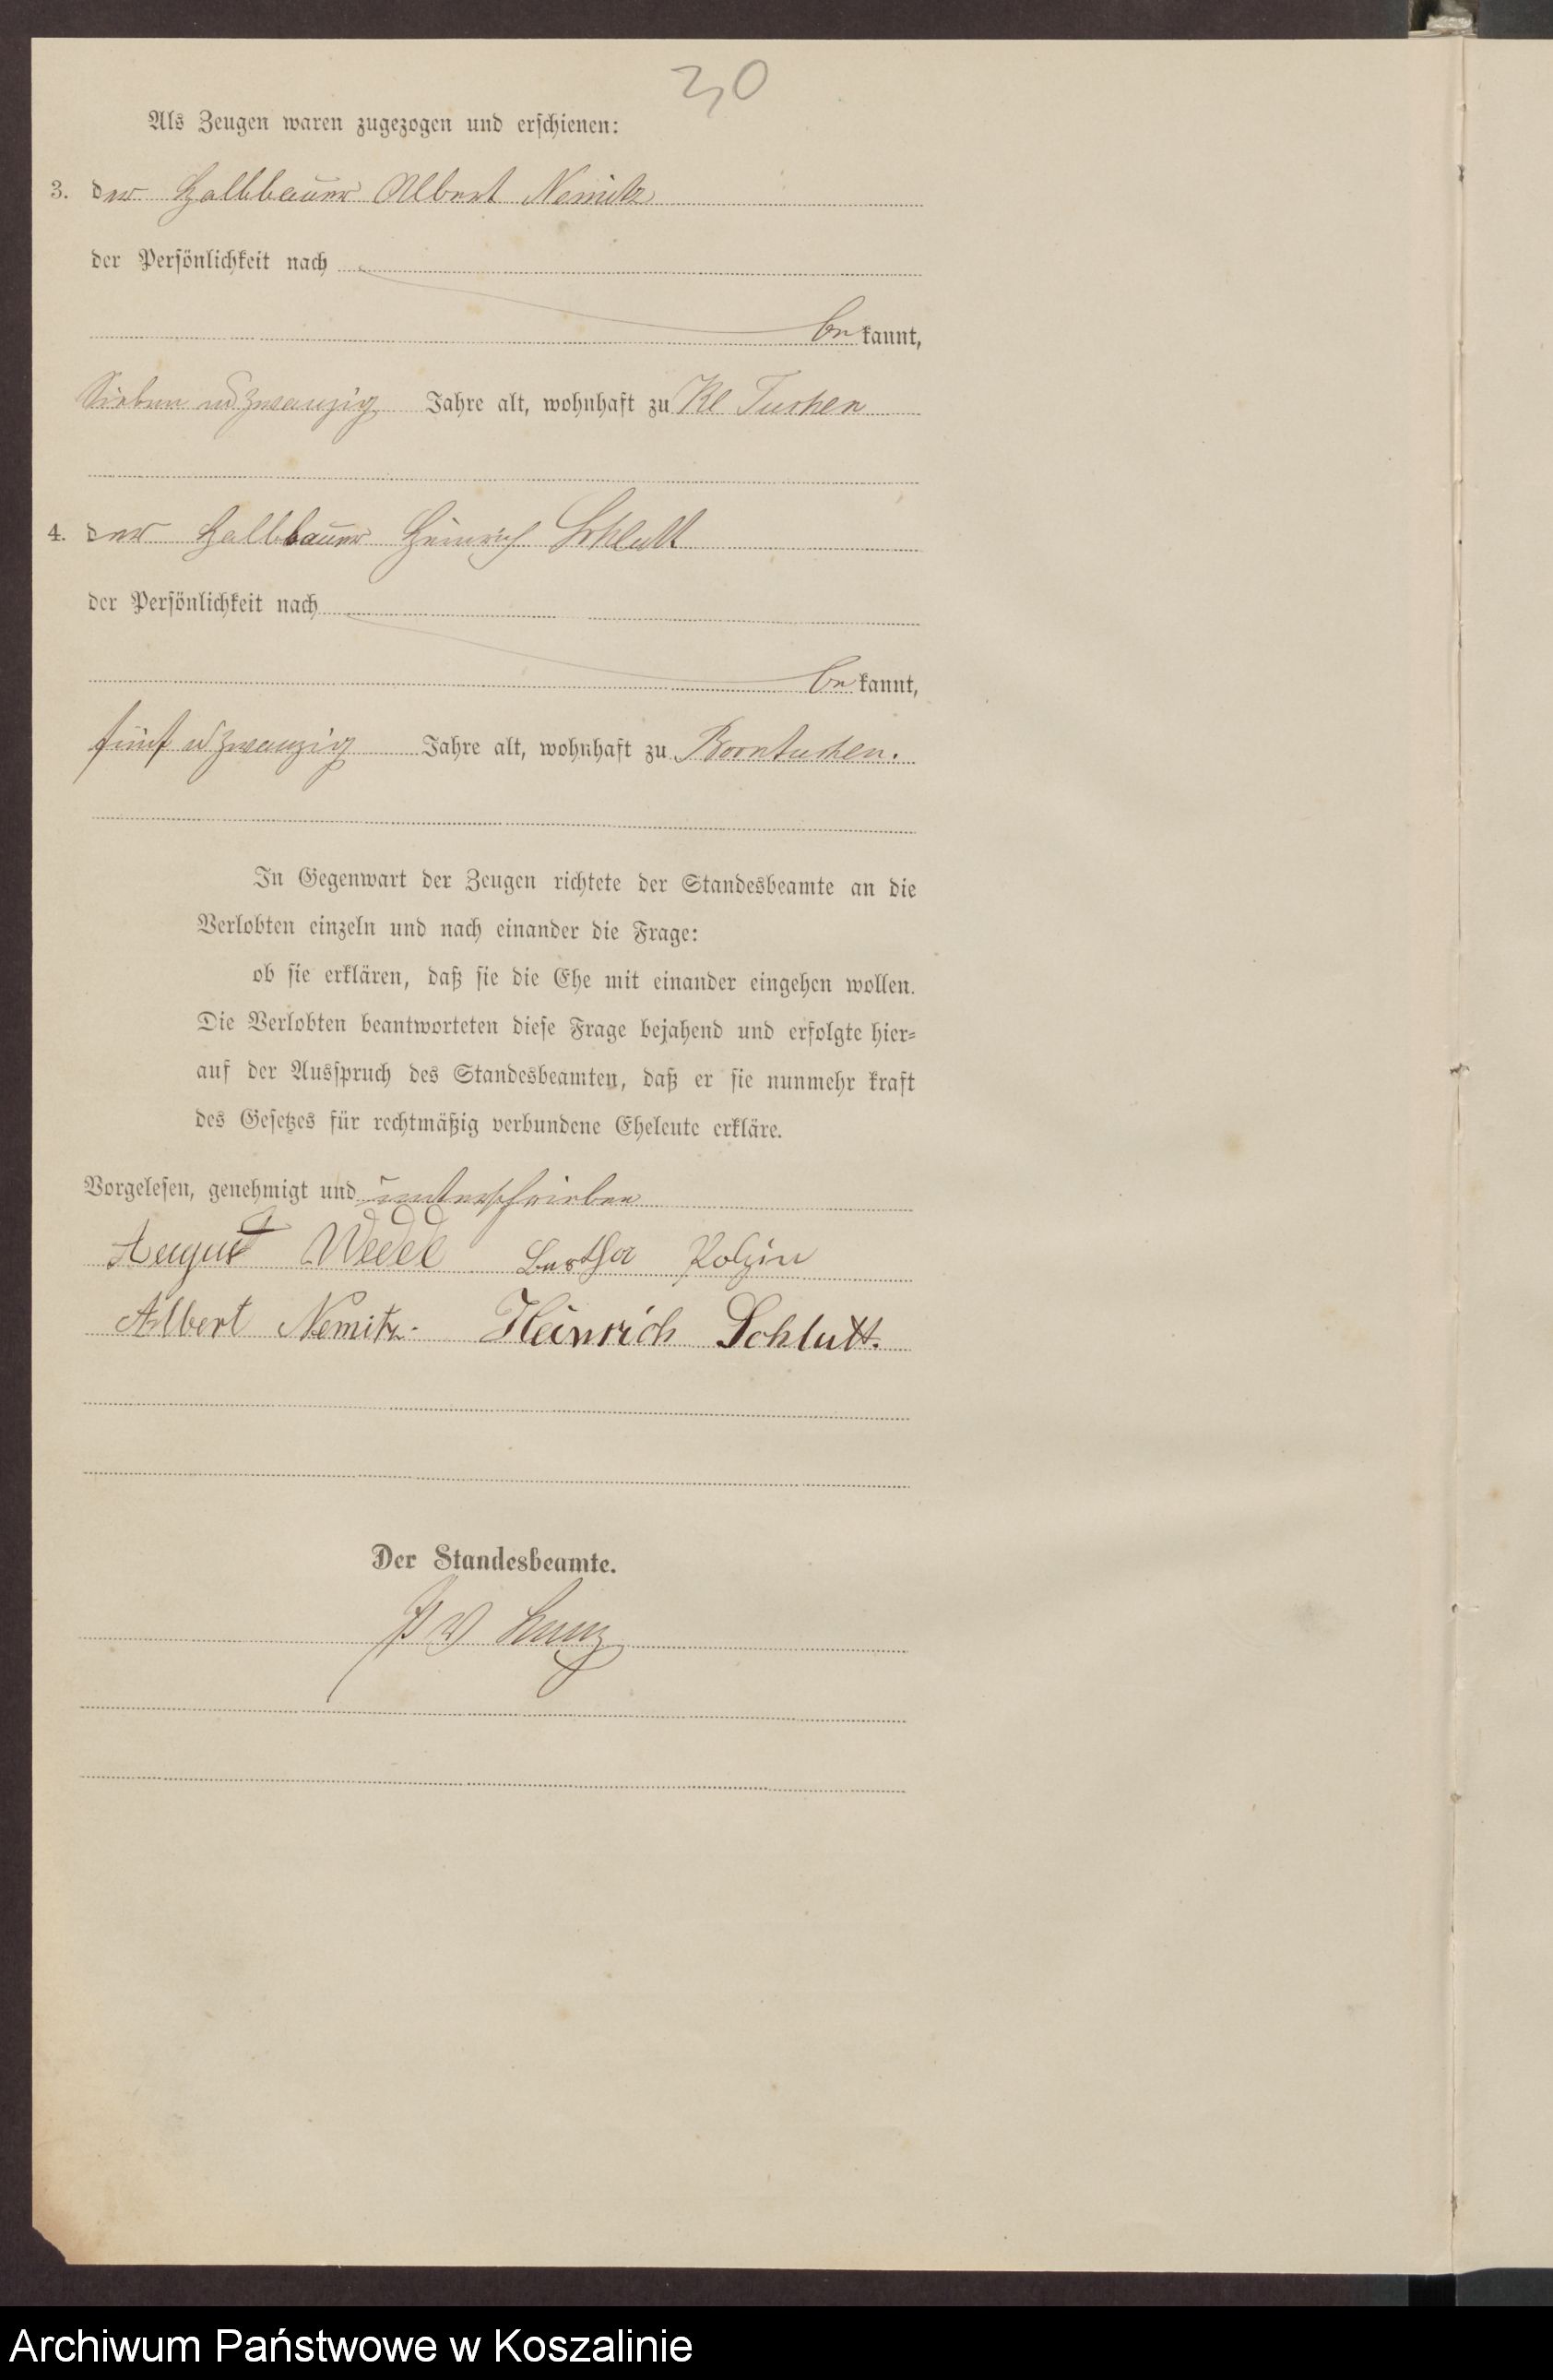 30
Als Zeugen waren zugezogen und erschienen:
3. der Halbbauer Albert Nemitz
der Persönlichkeit nach
be kannt,
Sieben und zwanzig Jahre alt, wohnhaft zu Kl Tuchen
4. der Halbbauer Heinrich Schlutt
der Persönlichkeit nach
be kannt,
fünf u zwanzig Jahre alt, wohnhaft zu Borntuchen.
In Gegenwart der Zeugen richtete der Standesbeamte an die
Verlobten einzeln und nach einander die Frage:
ob sie erklären, daß sie die Ehe mit einander eingehen wollen.
Die Verlobten beantworteten diese Frage bejahend und erfolgte hier-
auf der Ausspruch des Standesbeamten, daß er sie nunmehr kraft
des Gesetzes für rechtmäßig verbundene Eheleute erkläre.
Vorgelesen, genehmigt und unterschrieben
August Wedel Bertha Polzin
Albert Nemitz. Heinrich Schlutt.
Der Standesbeamte.
Archiwum Państwowe w Koszalinie